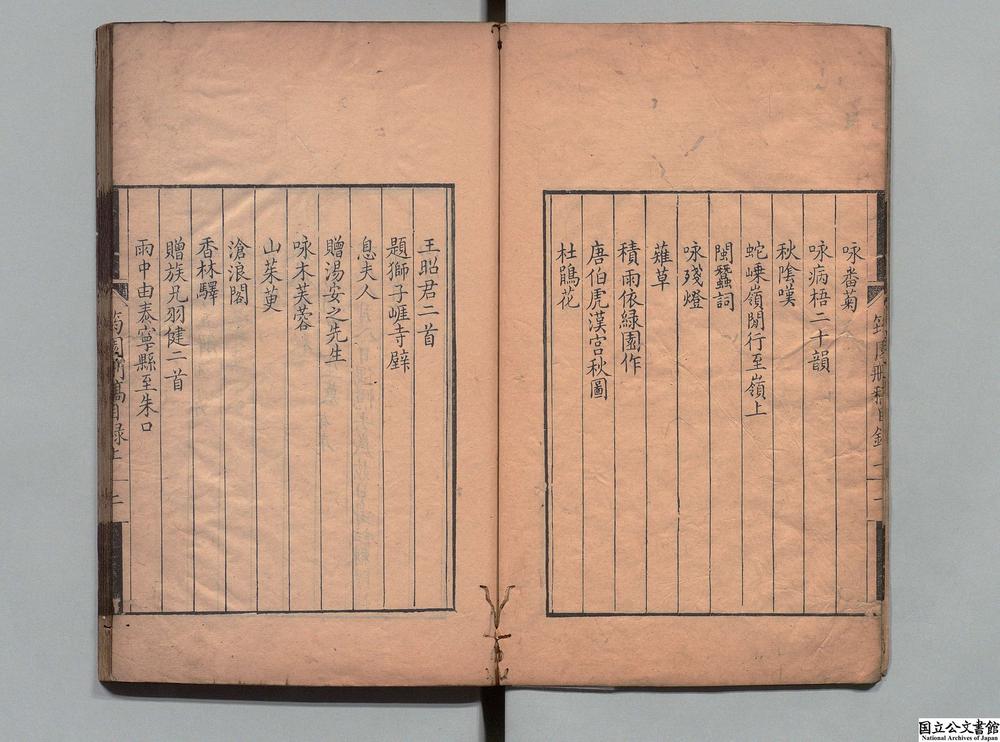 咏番菊
咏病梧二十韻
秋陰嘆
蛇嵊嶺閒行至嶺上
閩蠶詞
咏殘燈
薙草
積雨依緑園作
唐伯虎漢宫秋圖
杜鵑花
王昭君二首
題獅子崕寺壁
息夫人
贈湯安之先生
咏木芙蓉
山茱萸
滄浪閣
香林驛
贈族兄羽健二首
雨中由泰寧縣至朱口
国立公文書館
National Archives of Japan